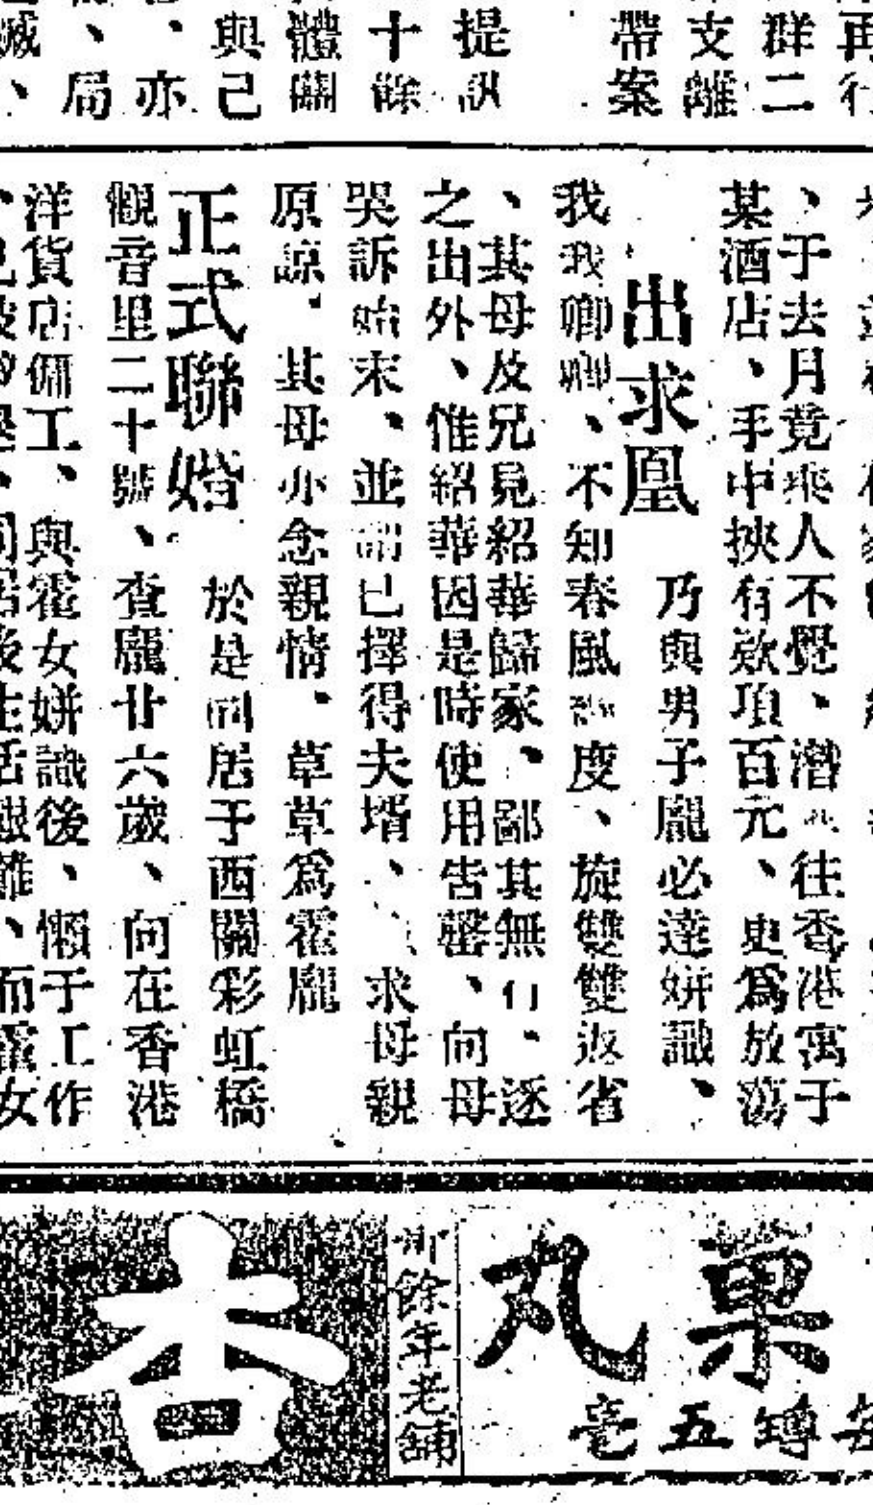 再行
群二
支離
帶案
提訊
十餘
體關
與己
、亦
、局
滅、
、于去月竟乘人不覺、潛 往香港寓于
某酒店、手中挾有欵項百元、更爲放蕩
出求凰 乃與男子龐必達姘識、
我我卿卿、不知春風 度、旋雙雙返省
、其母及兄見紹華歸家、鄙其無行、逐
之出外、惟紹華因是時使用告罄、向母
哭訴始末、並謂已擇得夫壻、、求母親
原諒、其母亦念親情、草草爲霍龐
正式聯婚 於是同居于西關彩虹橋
觀音里二十號、查龐廿六歲、向在香港
洋貨店傭工、與霍女姘識後、懶于工作
、同居後生活艱難、而霍女
菓丸
每罇五毫
卅餘年老舖
杏